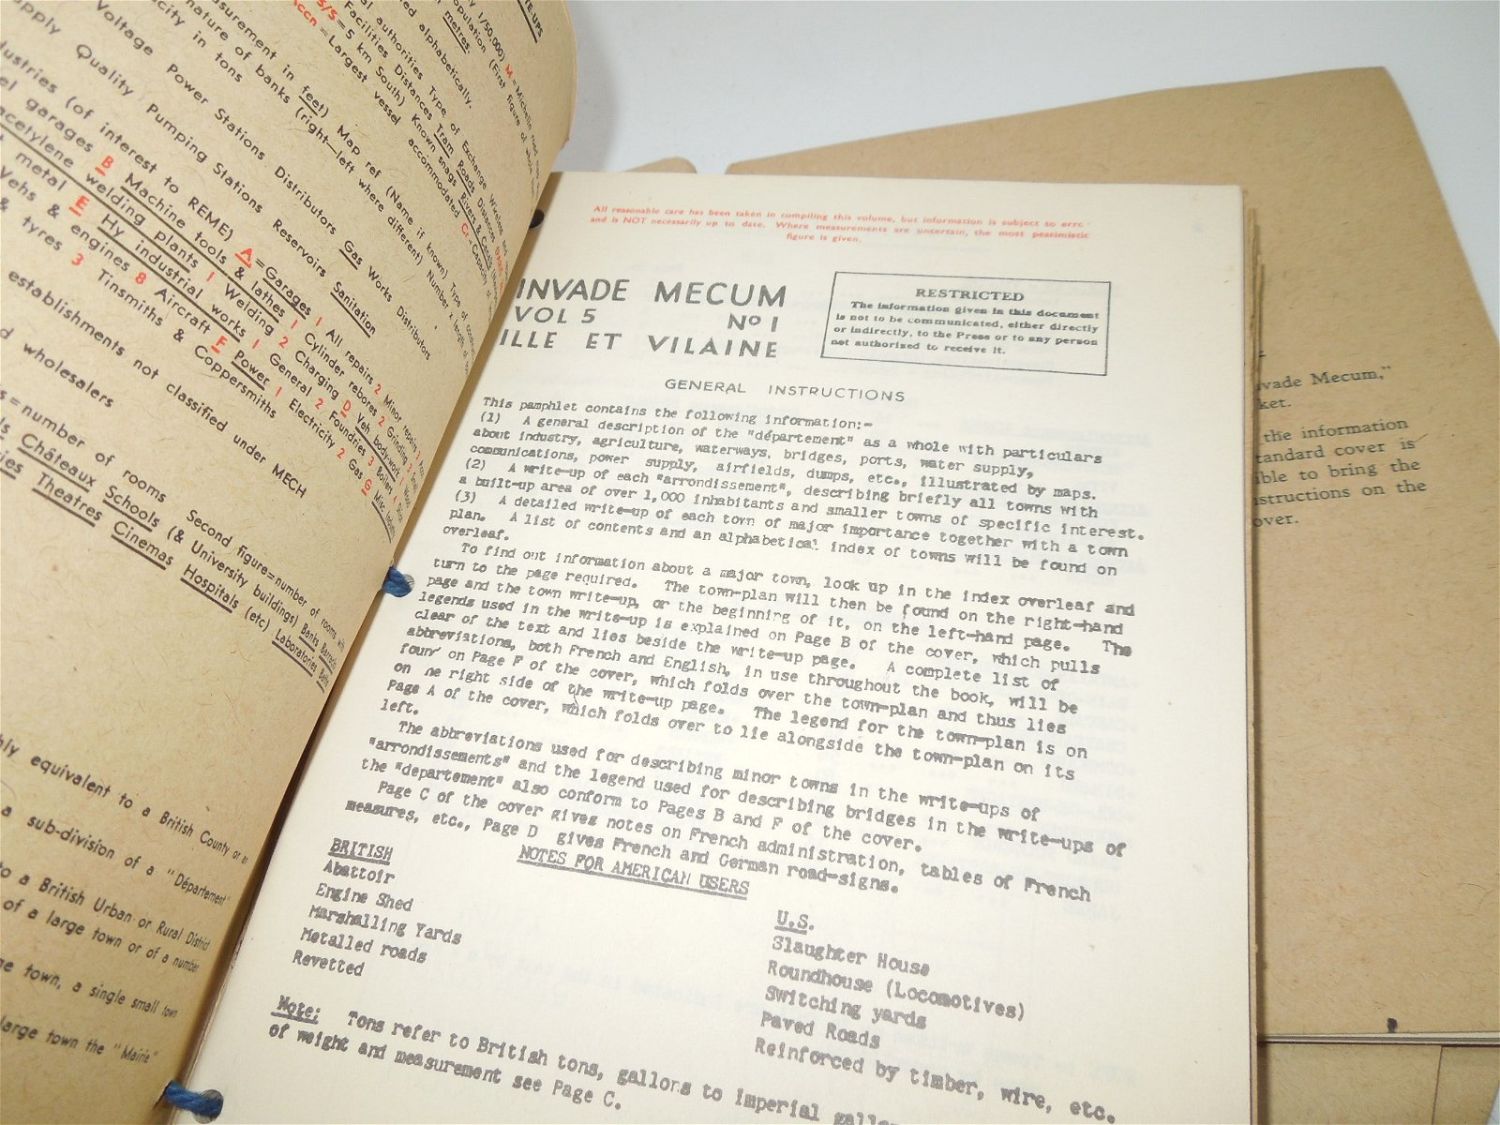 TE-UPS
1/50,000) M=Michelin road map
opulation (First figure of whole
metres.
ed alphabetically.
al authorities Type of Exchange Wireless and
Facilities Distances Tram Roads Distances
S/S=5 km South) Known snags Rivers & Canals
Accn=Largest vessel accommodated Cr=Capacity
asurement in feet) Map ref (Name if known) Type of
nature of banks (right—left where different) Number x length of
city in tons
Voltage Power Stations Distributors Gas Works Distributors
pply Quality Pumping Stations Reservoirs Sanitation
dustries (of interest to REME) A=Garages 1 All repairs 2 Minor repairs
el garages B Machine tools & lathes 1 Cylinder rebores 2 Grinding
acetylene welding plants 1 Welding 2 Charging D Veh body-work 1 Wood
t metal E Hy industrial works 1 General 2 Foundries 3 Boilers 4
Vehs & engines 8 Aircraft F Power 1 Electricity 2 Gas G Misc
& tyres 3 Tinsmiths & Coppersmiths
establishments not classified under MECH
d wholesalers
s=number of rooms Second figure=number of rooms with
ls Châteaux Schools (& University buildings) Banks Barracks
ries Theatres Cinemas Hospitals (etc) Laboratories
hly equivalent to a British County or
a sub-division of a "Département"
to a British Urban or Rural District
of a large town or of a number
ge town, a single small town
large town the "Mairie"
All reasonable care has been taken in compiling this volume, but information is subject to
and is NOT necessarily up to date. Where measurements are uncertain, the most pessimistic
figure is given.
INVADE MECUM
VOL 5 No 1
ILLE ET VILAINE
RESTRICTED
The information given in this document
is not to be communicated, either directly
or indirectly, to the Press or to any person
not authorised to receive it.
GENERAL INSTRUCTIONS
This pamphlet contains the following information:-
(1) A general description of the "département" as a whole with particulars
about industry, agriculture, waterways, bridges, ports, water supply,
communications, power supply, airfields, dumps, etc., illustrated by maps.
(2) A write-up of each "arrondissement", describing briefly all towns with
a built-up area of over 1,000 inhabitants and smaller towns of specific interest.
(3) A detailed write-up of each town of major importance together with a town
plan. A list of contents and an alphabetical index of towns will be found on
overleaf.
To find out information about a major town, look up in the index overleaf and
turn to the page required. The town-plan will then be found on the right-hand
page and the town write-up, or the beginning of it, on the left-hand page. The
legends used in the write-up is explained on Page B of the cover, which pulls
clear of the text and lies beside the write-up page. A complete list of
abbreviations, both French and English, in use throughout the book, will be
four on Page F of the cover, which folds over the town-plan and thus lies
on he right side of the write-up page. The legend for the town-plan is on
Page A of the cover, which folds over to lie alongside the town-plan on its
left.
The abbreviations used for describing minor towns in the write-ups of
"arrondissements" and the legend used for describing bridges in the write-ups of
the "departement" also conform to Pages B and F of the cover.
Page C of the cover gives notes on French administration, tables of French
measures, etc., Page D gives French and German road-signs.
NOTES FOR AMERICAN USERS
BRITISH U.S.
Abattoir Slaughter House
Engine Shed Roundhouse (Locomotives)
Marshalling Yards Switching yards
Metalled roads Paved Roads
Revetted Reinforced by timber, wire, etc.
Note: Tons refer to British tons, gallons to imperial gallo
of weight and measurement see Page C.
vade Mecum,"
ket.
the information
tandard cover is
ible to bring the
structions on the
over.